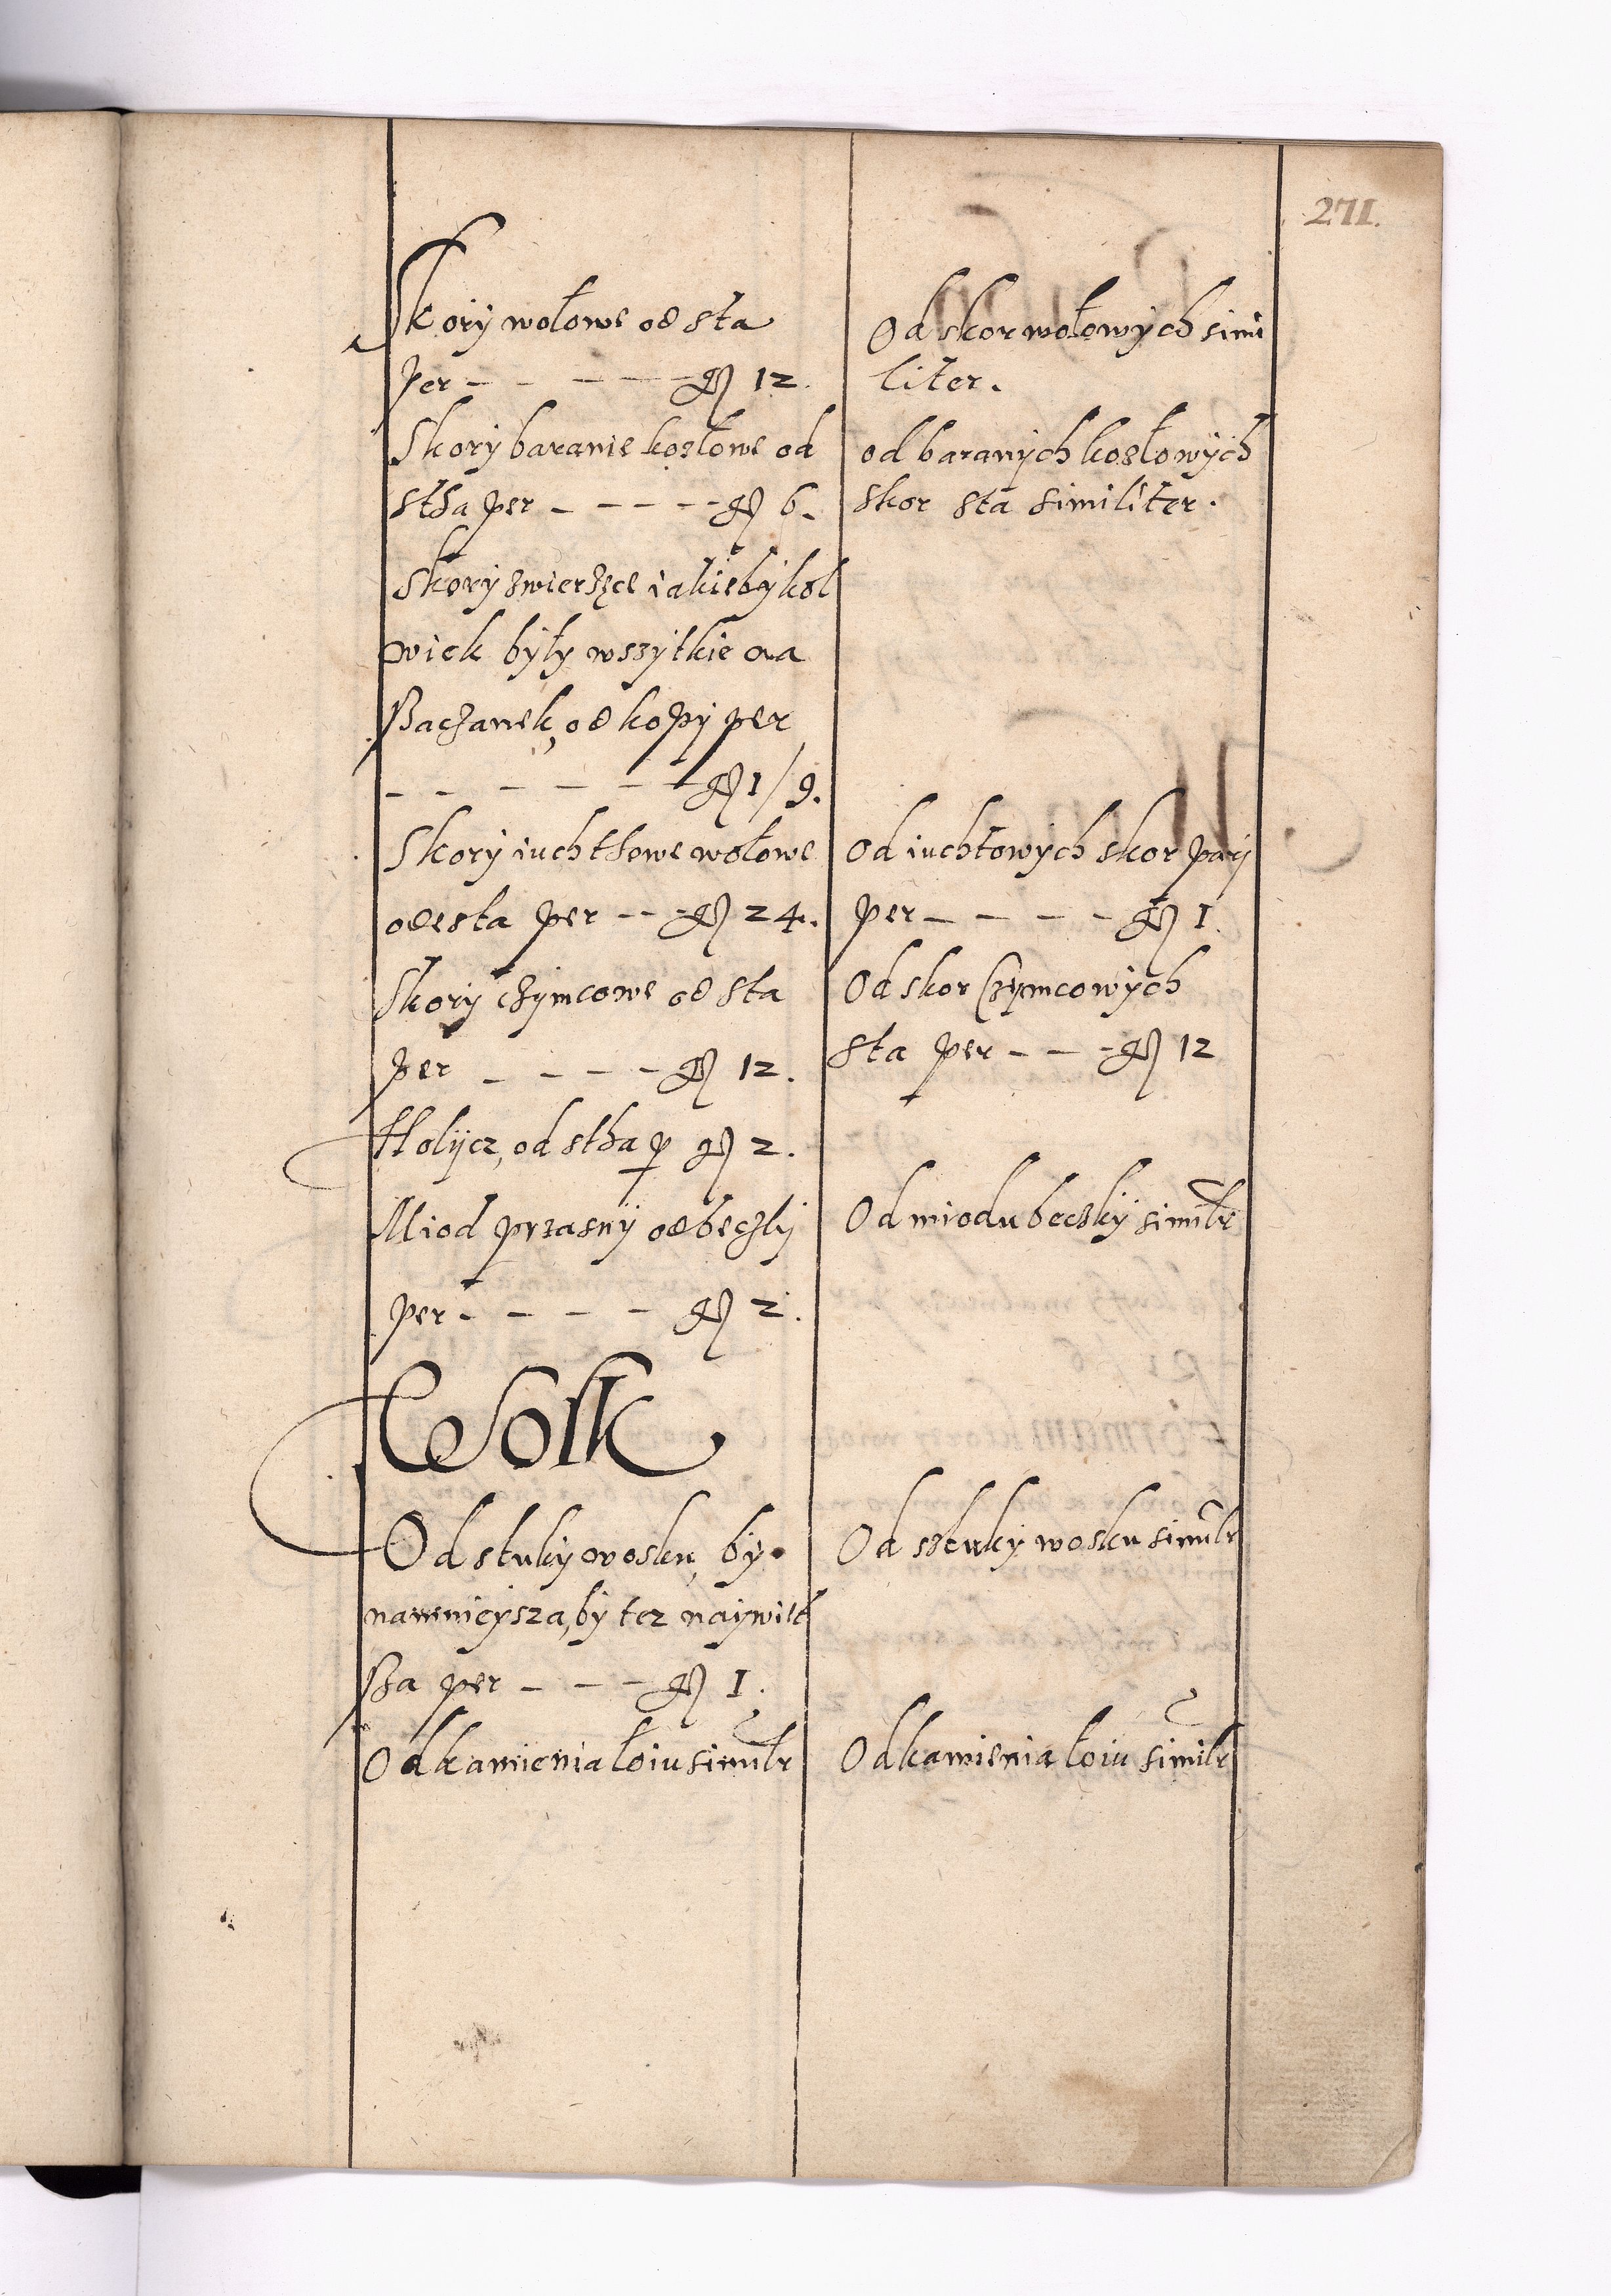 271.
Skory wołowe od sta
per - - - - - gr 12.
Skory baranie kozłowe od
stha per - - - - - gr 6.
Skory zwierzęce iakiebykol
wiek były wszytkie na
szaczunek, od kopy per
- - - - - - gr 1/9.
Skory iuchthowe wołowe
odesta per - - - gr 24.
Skory czymcowe od sta
per - - - - gr 12.
Holycz, od stha p gr 2.
Miod przasny od beczky
per - - - - gr 2.
Wosk
Od stuky wosku, by
namnieysza, by tez naywięt
sza per - - - gr 1.
Od kamienia łoiu similr
Od skor wołowych simi
liter.
od baranych kozłowych
skor sta similiter.
Od iuchtowych skor pary
per - - - - gr 1.
Od skor czymcowych
sta per - - - gr 12
Od miodu beczky similr
Od sztuky wosku similr
Od kamienia łoiu similr